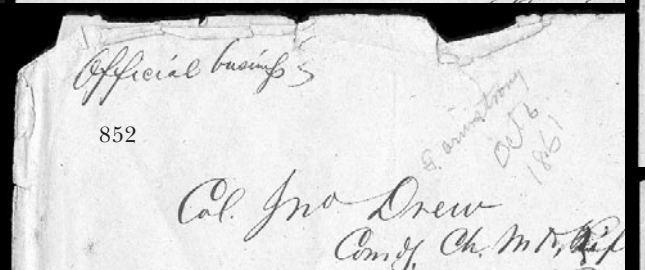 Official business
852
F. Armstrong
Oct 6
1861
Col. Jno Drew
Comdg. Ch. Mtd, Rif